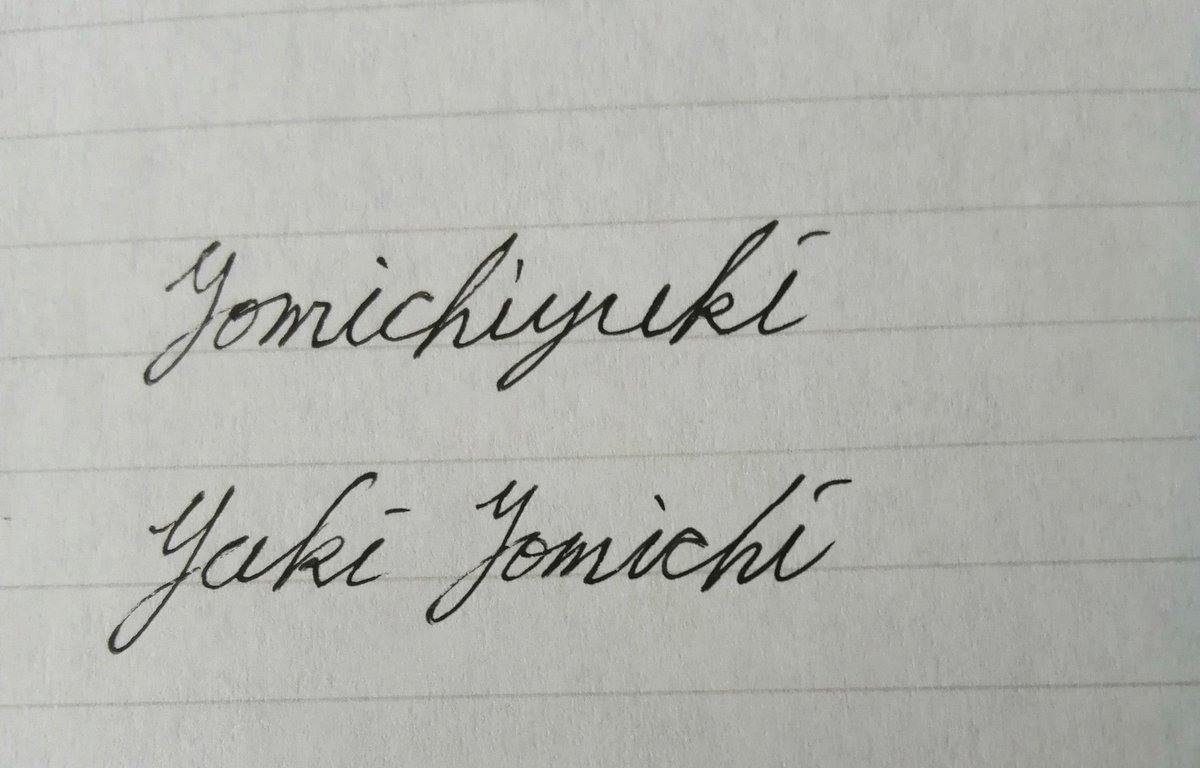 Yomichiyuki
Yuki Yomichi